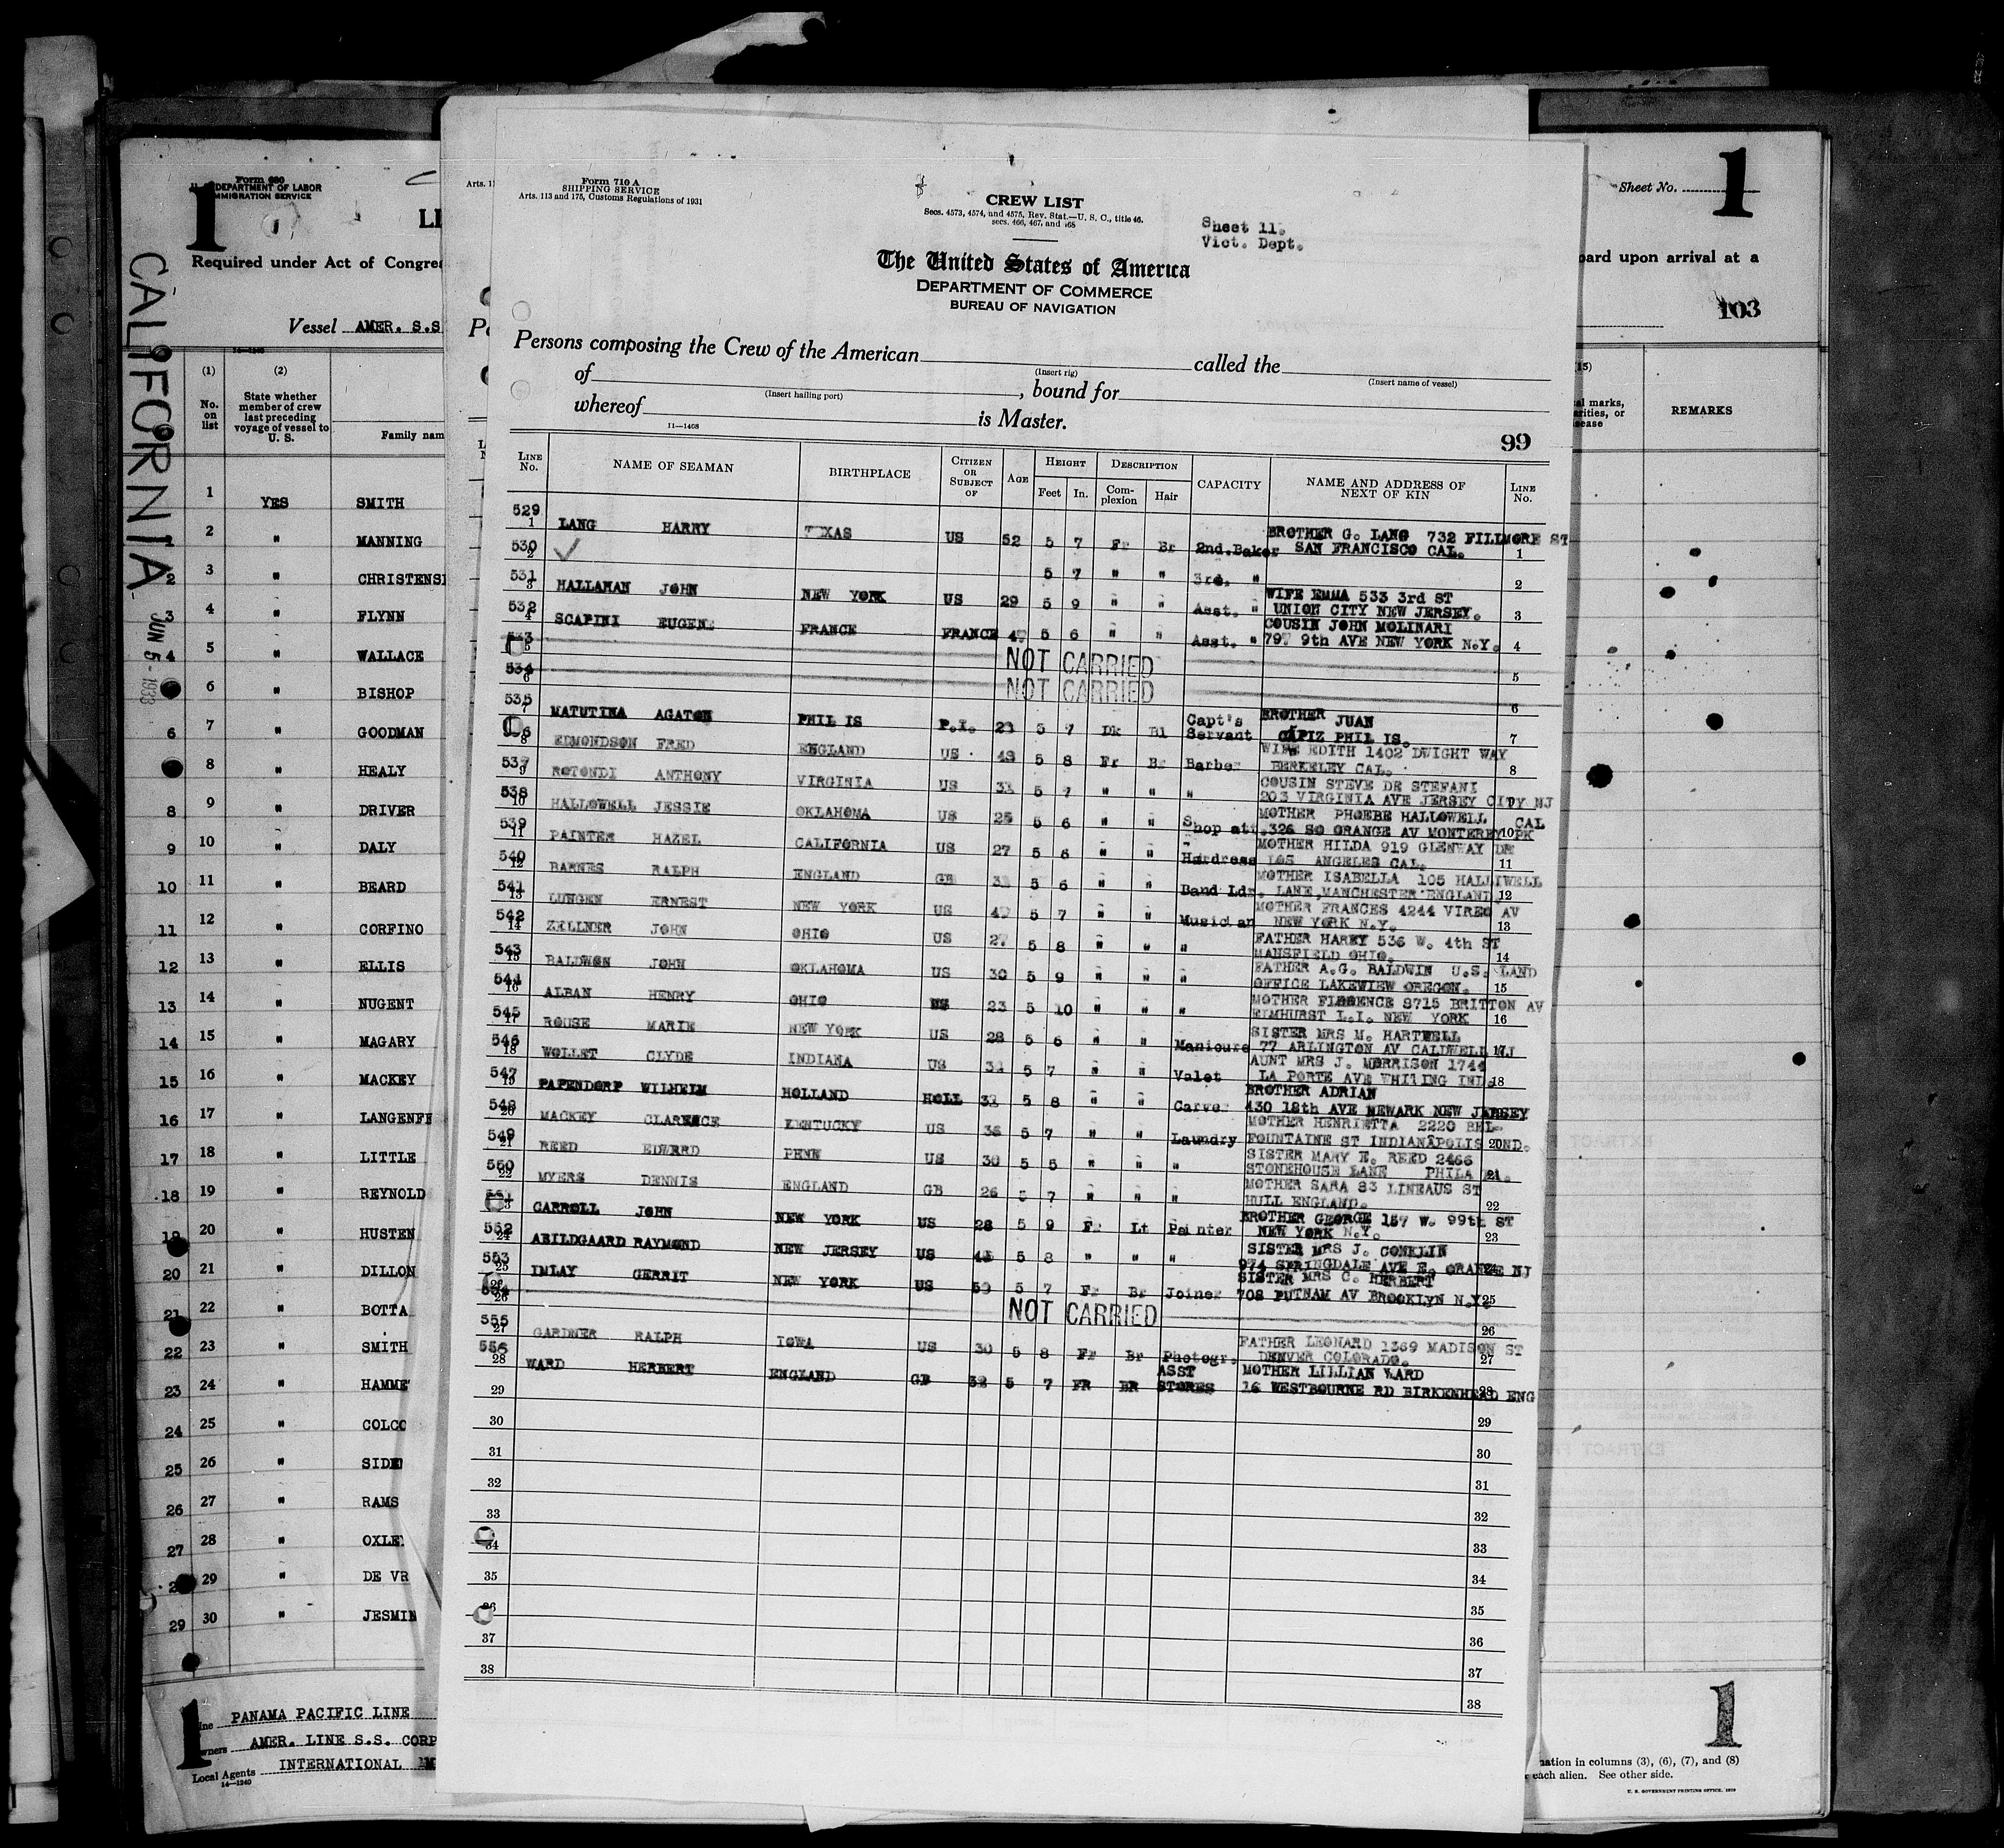 Form 680
U. S. DEPARTMENT OF LABOR
IMMIGRATION SERVICE
1
LI
Required under Act of Congre
Vessel AMER. S.S
CALIFORNIA JUN 5 - 1933
(1) (2)
No. on list
State whether member of crew last preceding voyage of vessel to U. S.
Family nam
1 YES SMITH
2 " MANNING
3 " CHRISTENS
4 " FLYNN
5 " WALLACE
6 " BISHOP
7 " GOODMAN
8 " HEALY
9 " DRIVER
10 " DALY
11 " BEARD
12 " CORFINO
13 " ELLIS
14 " NUGENT
15 " MAGARY
16 " MACKEY
17 " LANGENFE
18 " LITTLE
19 " REYNOLD
20 " HUSTEN
21 " DILLON
22 " BOTTA
23 " SMITH
24 " HAMME
25 " COLCO
26 " SIDE
27 " RAMS
28 " OXLE
29 " DE VR
30 " JESMIN
1
Line PANAMA PACIFIC LINE
Owners AMER. LINE S.S. CORP
Local Agents INTERNATIONAL M
14—1240
Arts. 11
Form 710 A
SHIPPING SERVICE
Arts. 113 and 175, Customs Regulations of 1931
CREW LIST
Secs. 4573, 4574, and 4575, Rev. Stat.—U. S. C., title 46,
secs. 466, 467, and 468
Sheet 11.
Vict. Dept.
The United States of America
DEPARTMENT OF COMMERCE
BUREAU OF NAVIGATION
Persons composing the Crew of the American called the
(Insert rig) (Insert name of vessel)
of , bound for
(Insert hailing port)
whereof is Master.
11—1408
99
LINE No. NAME OF SEAMAN BIRTHPLACE CITIZEN OR SUBJECT OF AGE HEIGHT Feet In. DESCRIPTION Complexion Hair CAPACITY NAME AND ADDRESS OF NEXT OF KIN LINE No.
529 1 LANG HARRY TEXAS US 52 5 7 Fr Br 2nd.Baker BROTHER G. LANG 732 FILLMORE ST
SAN FRANCISCO CAL. 1
530 2 5 7 " " 3rd. " 2
531 3 HALLAHAN JOHN NEW YORK US 29 5 9 " " Asst. " WIFE EMMA 533 3rd ST
UNION CITY NEW JERSEY. 3
532 4 SCAPINI EUGENE FRANCE FRANCE 5 6 " " Asst. " COUSIN JOHN MOLINARI
797 9th AVE NEW YORK N.Y. 4
533 5 NOT CARRIED 5
534 6 NOT CARRIED 6
535 7 MATUTINA AGATON PHIL IS P.I. 23 5 7 Dk Bl Capt's Servant BROTHER JUAN
CAPIZ PHIL IS. 7
536 8 EDMONDSON FRED ENGLAND US 48 5 8 Fr Br Barber WIFE EDITH 1402 DWIGHT WAY
BERKELEY CAL. 8
537 9 ROTONDI ANTHONY VIRGINIA US 33 5 7 " " " COUSIN STEVE DE STEFANI
203 VIRGINIA AVE JERSEY CITY NJ
538 10 HALLOWELL JESSIE OKLAHOMA US 25 5 6 " " Shop att. MOTHER PHOEBE HALLOWELL CAL
326 SO ORANGE AV MONTEREY PK 10
539 11 PAINTER HAZEL CALIFORNIA US 27 5 6 " " Hairdress MOTHER HILDA 919 GLENWAY DR
LOS ANGELES CAL. 11
540 12 BARNES RALPH ENGLAND GB 5 6 " " Band Ldr. MOTHER ISABELLA 105 HALLIWELL
LANE, MANCHESTER ENGLAND 12
541 13 LUNGEN ERNEST NEW YORK US 5 7 " " Musician MOTHER FRANCES 4244 VIREO AV
NEW YORK N.Y. 13
542 14 ZELLNER JOHN OHIO US 27 5 8 " " " FATHER HARRY 536 W. 4th ST
MANSFIELD OHIO. 14
543 15 BALDWON JOHN OKLAHOMA US 30 5 9 " " " FATHER A.G. BALDWIN U.S. LAND
OFFICE LAKEVIEW OREGON. 15
544 16 ALBAN HENRY OHIO US 23 5 10 " " " MOTHER FLORENCE 8715 BRITTON AV
ELMHURST L.I. NEW YORK 16
545 17 ROUSE MARIE NEW YORK US 28 5 6 " " Manicure SISTER MRS M. HARTWELL
77 ARLINGTON AV CALDWELL NJ 17
546 18 WOLLET CLYDE INDIANA US 5 7 " " Valet AUNT MRS J. MORRISON 1744
LA PORTE AVE WHITING IND. 18
547 19 PAPENDORP WILHELM HOLLAND HOLL 5 8 " " Carver BROTHER ADRIAN
430 18th AVE NEWARK NEW JERSEY
548 20 MACKEY CLARENCE KENTUCKY US 36 5 7 " " Laundry MOTHER HENRIETTA 2220 BEL
FOUNTAINE ST INDIANAPOLIS IND. 20
549 21 REED EDWARD PENN US 30 5 5 " " " SISTER MARY E. REED 2466
STONEHOUSE LANE PHILA 21
550 22 MYERS DENNIS ENGLAND GB 26 5 7 " " " MOTHER SARA 83 LINEAUS ST
HULL ENGLAND. 22
551 23 CARROLL JOHN NEW YORK US 28 5 9 Fr Lt Painter BROTHER GEORGE 157 W. 99th ST
NEW YORK N.Y. 23
552 24 ABILDGAARD RAYMOND NEW JERSEY US 5 8 " " " SISTER MRS J. CONKLIN
974 SPRINGDALE AVE E. ORANGE NJ
553 25 IMLAY GERRIT NEW YORK US 59 5 7 Fr Br Joiner SISTER MRS C. HERBERT
708 PUTNAM AV BROOKLYN N.Y. 25
554 26 NOT CARRIED 26
555 27 GARDNER RALPH IOWA US 30 5 8 Fr Br Photogr. FATHER LEONARD 1369 MADISON ST
DENVER COLORADO. 27
556 28 WARD HERBERT ENGLAND GB 32 5 7 FR BR ASST STORES MOTHER LILLIAN WARD
16 WESTBOURNE RD BIRKENHEAD ENG 28
29 29
30 30
31 31
32 32
33 33
34 34
35 35
36 36
37 37
38 38
Sheet No.
1
oard upon arrival at a
103
(15)
al marks,
arities, or
sease
REMARKS
1
mation in columns (3), (6), (7), and (8)
each alien. See other side.
U. S. GOVERNMENT PRINTING OFFICE